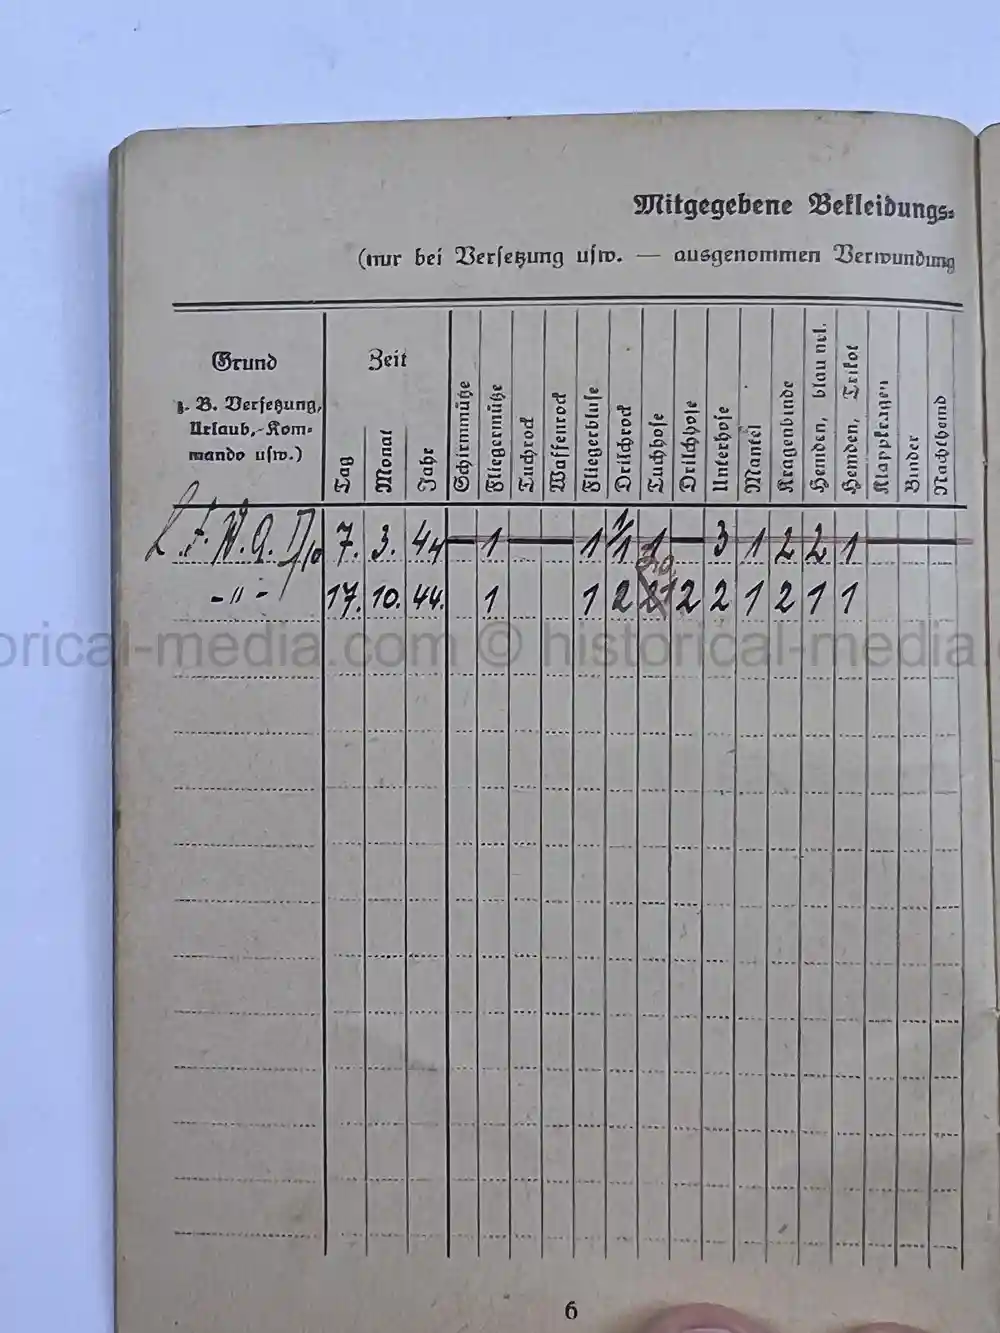 Mitgegebene Bekleidungs-
(nur bei Versetzung usw. — ausgenommen Verwundung
Grund
z. B. Versetzung,
Urlaub,-Kom-
mando usw.)
Zeit
Tag
Monat
Jahr
Schirmmütze
Fliegermütze
Tuchrock
Waffenrock
Fliegerbluse
Drilchrock
Tuchhose
Drilchhose
Unterhose
Mantel
Kragenbinde
Hemden, blau
Hemden, Trikot
Klappkragen
Binder
Nachthemd
7. 3. 44 — 1 — 1 1/1 1 — 3 1 2 2 1 —
-"- 17. 10. 44. 1 1 2 2 2 1 2 1 1
historical-media.com © historical-media.
6